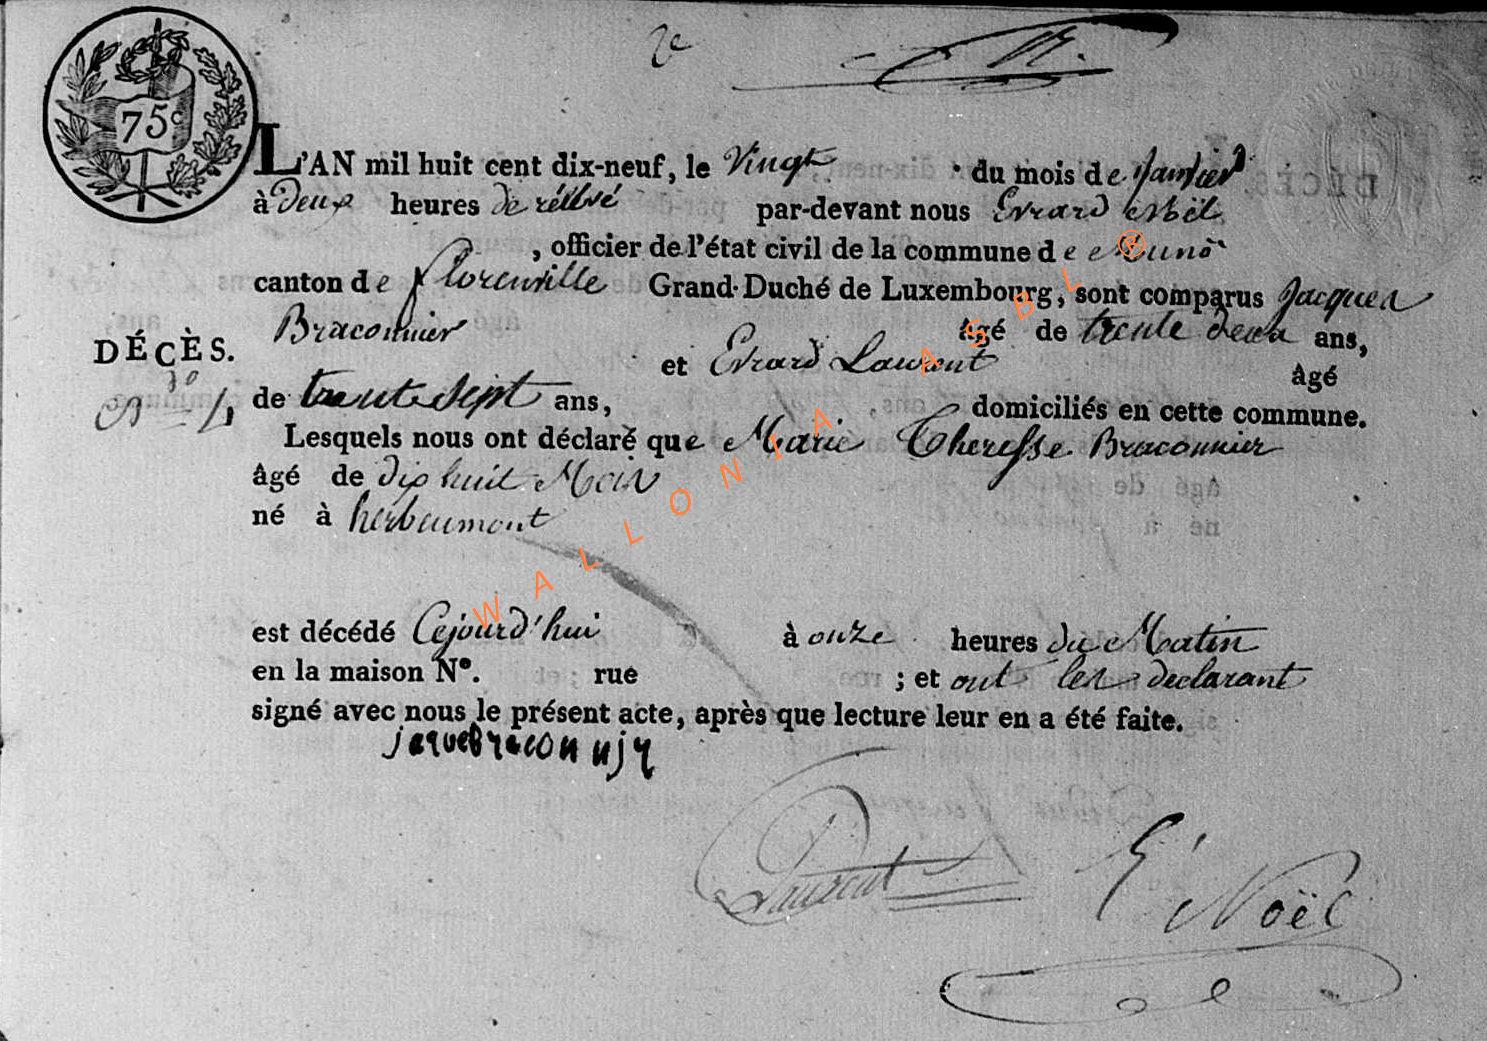 75c
L'AN mil huit cent dix-neuf, le Vingt du mois de Janvier
à deux heures de rélevé par-devant nous Evrard Noël
, officier de l'état civil de la commune de Muno
canton de florenville Grand-Duché de Luxembourg, sont comparus Jacques
Braconnier âgé de trente deux ans,
DÉCÈS.
et Evrard Laurent âgé
No 4
de trente sept ans, domiciliés en cette commune.
Lesquels nous ont déclaré que Marie Theresse Braconnier
âgé de dix huit Mois
né à herbeumont
est décédé Cejourd'hui à onze heures du Matin
en la maison No. rue ; et ont les declarant
signé avec nous le présent acte, après que lecture leur en a été faite.
jaque braconnjy
Laurent
E Noël
WALLONIA ASBL ®